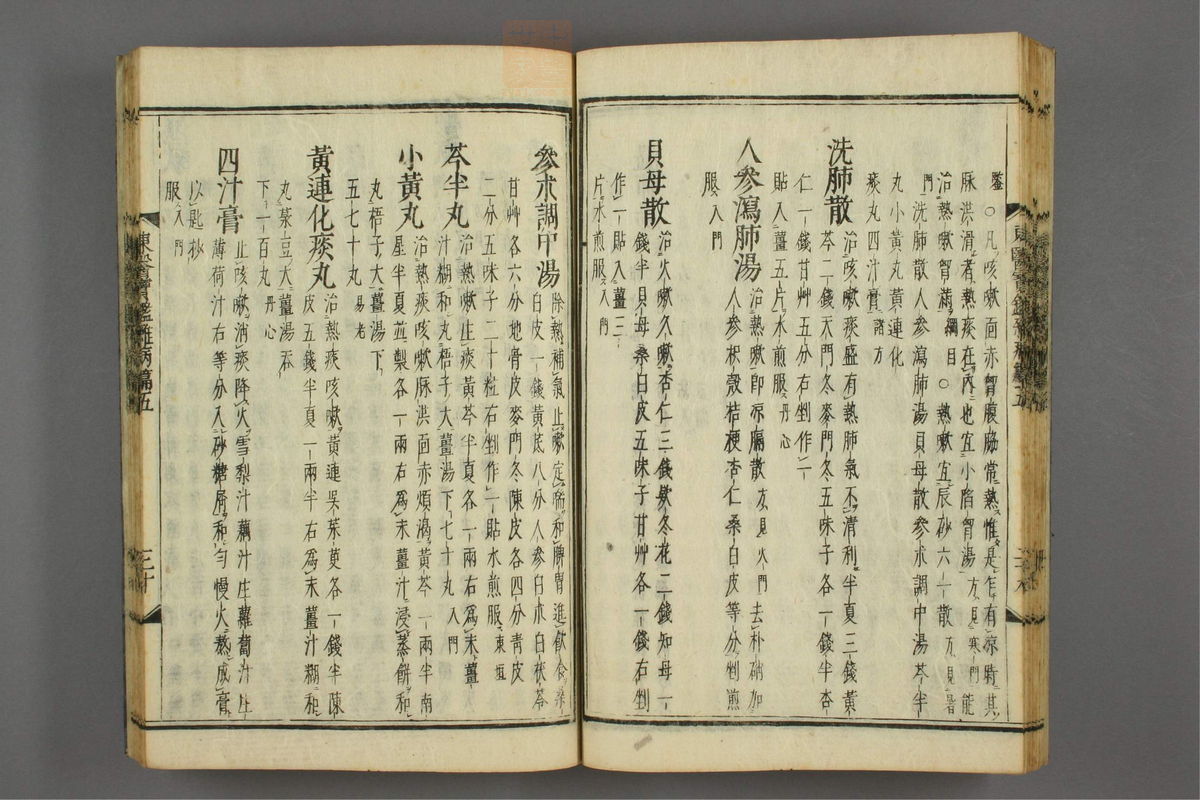 鑒○凡咳嗽面赤胷腹脇常熱惟是乍有凉時其
脉洪滑者熱痰在內也宜小陷胷湯方見寒門能
治熱嗽胷滿綱目○熱嗽宜辰砂六一散方見暑
門洗肺散人參瀉肺湯貝母散參朮調中湯芩半
丸小黃丸黃連化
痰丸四汁膏諸方
洗肺散治咳嗽痰盛有熱肺氣不清利半夏三錢黃
芩二錢天門冬麥門冬五味子各一錢半杏
仁一錢甘艸五分右剉作一
貼入薑五片水煎服丹心
人參瀉肺湯治熱嗽卽凉膈散方見火門去朴硝加
人參枳殼桔梗杏仁桑白皮等分剉煎
服入門
貝母散治火嗽久嗽杏仁三錢款冬花二錢知母一
錢半貝母桑白皮五味子甘艸各一錢右剉
作一貼入薑三
片水煎服入門
東醫寶鑑雜病篇五
參朮調中湯除熱補氣止嗽定喘和脾胃進飮食桑
白皮一錢黃芪八分人參白朮白茯苓
甘艸各六分地骨皮麥門冬陳皮各四分靑皮
二分五味子二十粒右剉作一貼水煎服東垣
芩半丸治熱嗽止痰黃芩半夏各一兩右爲末薑
汁糊和丸梧子大薑湯下七十丸入門
小黃丸治熱痰咳嗽脉洪面赤煩渴黃芩一兩半南
星半夏並製各一兩右爲末薑汁浸蒸餠和
丸梧子大薑湯下
五七十丸易老
黃連化痰丸治熱痰咳嗽黃連吳茱萸各一錢半陳
皮五錢半夏一兩半右爲末薑汁糊和
丸菉豆大薑湯呑
下一百丸丹心
四汁膏止咳嗽消痰降火雪梨汁藕汁生蘿葍汁生
薄荷汁右等分入砂糖屑和勻慢火熬成膏
以匙抄
服入門
三十